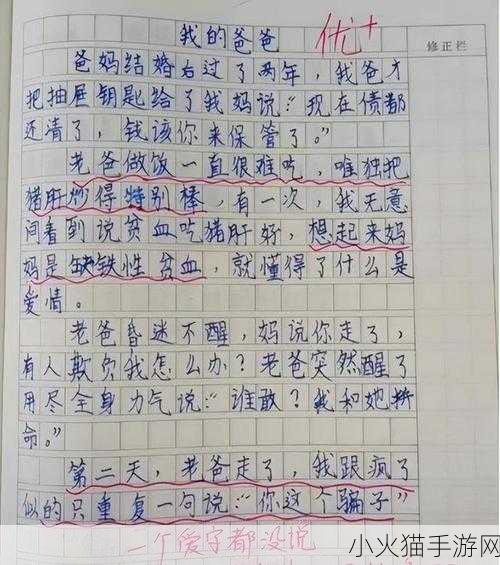 我的爸爸
优+
修正栏
爸妈结婚后过了两年，我爸才
把抽屉钥匙给了我妈说：“现在债都
还清了，钱该你来保管了。”
老爸做饭一直很难吃，唯独把
猪肝炒得特别棒，有一次，我无意
间看到说贫血吃猪肝好，想起来妈
妈是缺铁性贫血，就懂得了什么是
爱情。
老爸昏迷不醒，妈说你走了，
有人欺负我怎么办？老爸突然醒了
用尽全身力气说：“谁敢？我和她拚
命。”
第二天，老爸走了，我跟疯了
似的只重复一句说：“你这个骗子”
一个爱字都没说
小火猫手游网